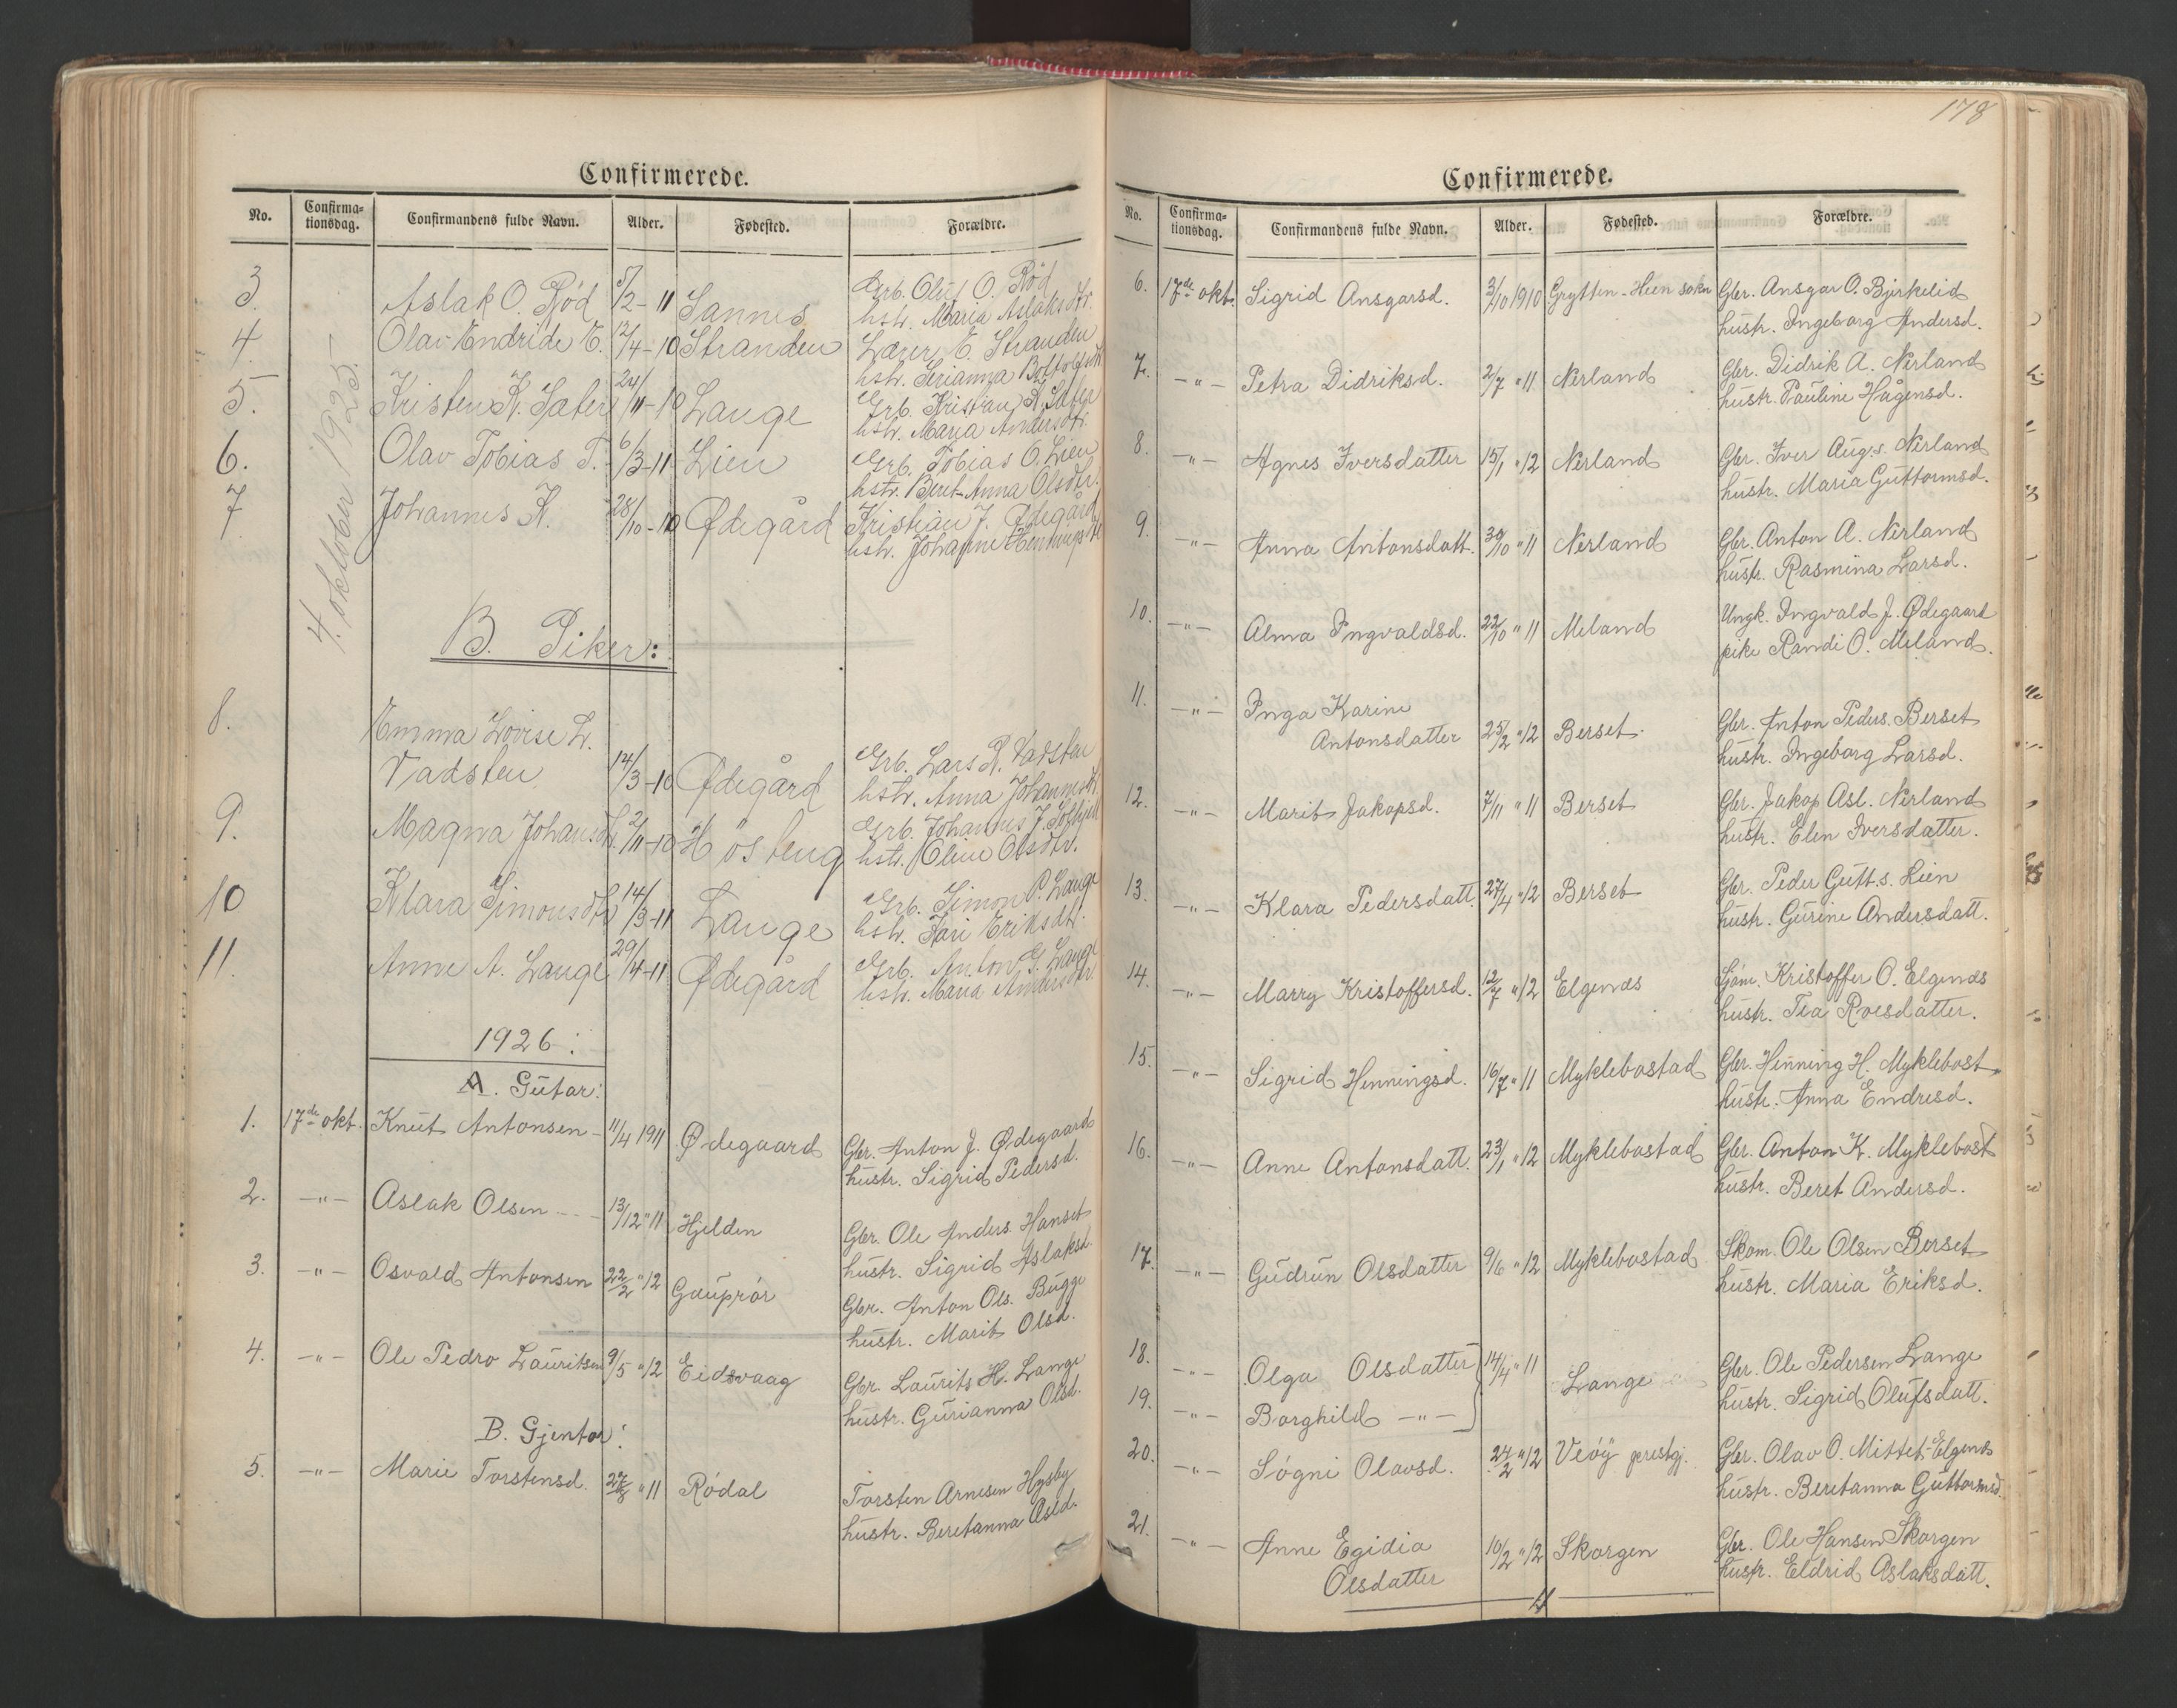 Confirmerede.
No. Confirma-tionsdag. Confirmandens fulde Navn. Alder. Fødested. Forældre.
4. oktober 1925
3. Aslak O. Rød 5/2-11 Sannes Grb. Oluf O. Rød
hstr. Maria Aslaksdtr.
4. Olav Endride E. 12/4-10 Stranden Lærer E. Stranden
hstr. Serianna
5. Kristen K. Sæter 24/11-10 Lange Grb. Kristian K. Sæter
hstr. Maria Andersdtr.
6. Olav Tobias T. 6/3-11 Lien Grb. Tobias O. Lien
hstr. Beret-Anna Olsdtr.
7. Johannes K. 28/10-10 Ødegård Kristian J. Ødegård
hstr. Johanne Henningsdtr
B. Piker:
8. Emma Lovise L.
Vadsten 14/3-10 Ødegård Grb. Lars R. Vadsten
hstr. Anna Johannesdtr.
9. Magna Johansdtr. 2/11-10 Høsteng Grb. Johannes J.
hstr. Oline Olsdtr.
10 Klara Simonsdtr 14/3-11 Lange Grb. Simon P. Lange
hstr. Kari Eriksdtr.
11. Anne A. Lange 29/4-11 Ødegård Grb. Anton G. Lange
hstr. Maria Andersdtr.
1926:
A. Gutar:
1. 17de okt. Knut Antonsen - 11/4 1911 Ødegaard Gbr. Anton J. Ødegaard
hustr. Sigrid Pedersd.
2. -"- Aslak Olsen - - - 13/12 " 11 Hjelden Gbr. Ole Anders. Hanset
hustr. Sigrid Aslaksd.
3. -"- Osvald Antonsen 22/2 " 12 Gauprør Gbr. Anton Ols. Bugge
hustr. Marit Olsd.
4. -"- Ole Pedro Lauritsen 9/5 " 12 Eidsvaag Gbr. Laurits H. Lange
hustr. Gurianna Olsd.
B. Gjentor:
5. -"- Marie Torstensd. 27/8 " 11 Rødal Torsten Arnesen Hysby
hustr. Beretanna Asld.
178
Confirmerede.
No. Confirma-tionsdag. Confirmandens fulde Navn. Alder. Fødested. Forældre.
6. 17de okt. Sigrid Ansgarsd. 3/10 1910 Grytten - Hen sokn Gbr. Ansgar O. Bjørkelid
hustr. Ingeborg Andersd.
7. -"- Petra Didriksd. 2/7 " 11 Nerland Gbr. Didrik A. Nerland
hustr. Pauline Hågensd.
8. -"- Agnes Iversdatter 15/1 " 12 Nerland Gbr. Iver Aug.s. Nerland
hustr. Maria Guttormsd.
9. -"- Anna Antonsdatt. 30/10 " 11 Nerland Gbr. Anton A. Nerland
hustr. Rasmina Larsd.
10. -"- Alma Ingvaldsd. 22/10 " 11 Meland Ungk. Ingvald J. Ødegaard
pike Randi O. Meland.
11. -"- Inga Karine
Antonsdatter 25/2 " 12 Berset Gbr. Anton Peders. Berset
hustr. Ingeborg Larsd.
12. -"- Marit Jakopsd. 7/11 " 11 Berset Gbr. Jakop Asl. Nerland
hustr. Elen Iversdatter.
13. -"- Klara Pedersdatt. 27/4 " 12 Berset Gbr. Peder Gutt.s. Lien
hustr. Gurine Andersdatt.
14. -"- Marry Kristoffersd. 12/7 " 12 Elgenæs Sjøm. Kristoffer O. Elgenæs
hustr. Tea Roesdatter.
15. -"- Sigrid Henningsd. 16/7 " 11 Myklebostad Gbr. Henning H. Myklebost
hustr. Anna Endresd.
16. -"- Anne Antonsdatt. 23/1 " 12 Myklebostad Gbr. Anton K. Myklebost
hustr. Beret Andersd.
17. -"- Gudrun Olsdatter 9/6 " 12 Myklebostad Skom. Ole Olsen Berset
hustr. Maria Eriksd.
18. -"- Olga Olsdatter 14/4 " 11 Lange Gbr. Ole Pedersen Lange
19. -"- Borghild -"- hustr. Sigrid Olufsdatt.
20. -"- Søgni Olavsd. 24/2 " 12 Veøy prestgj. Gbr. Olav O. Mittet-Elgenæs
hustr. Beretanna Guttormsd.
21. -"- Anne Egidia
Olsdatter 10/2 " 12 Skorgen Gbr. Ole Hansen Skorgen
hustr. Eldrid Aslaksdatt.